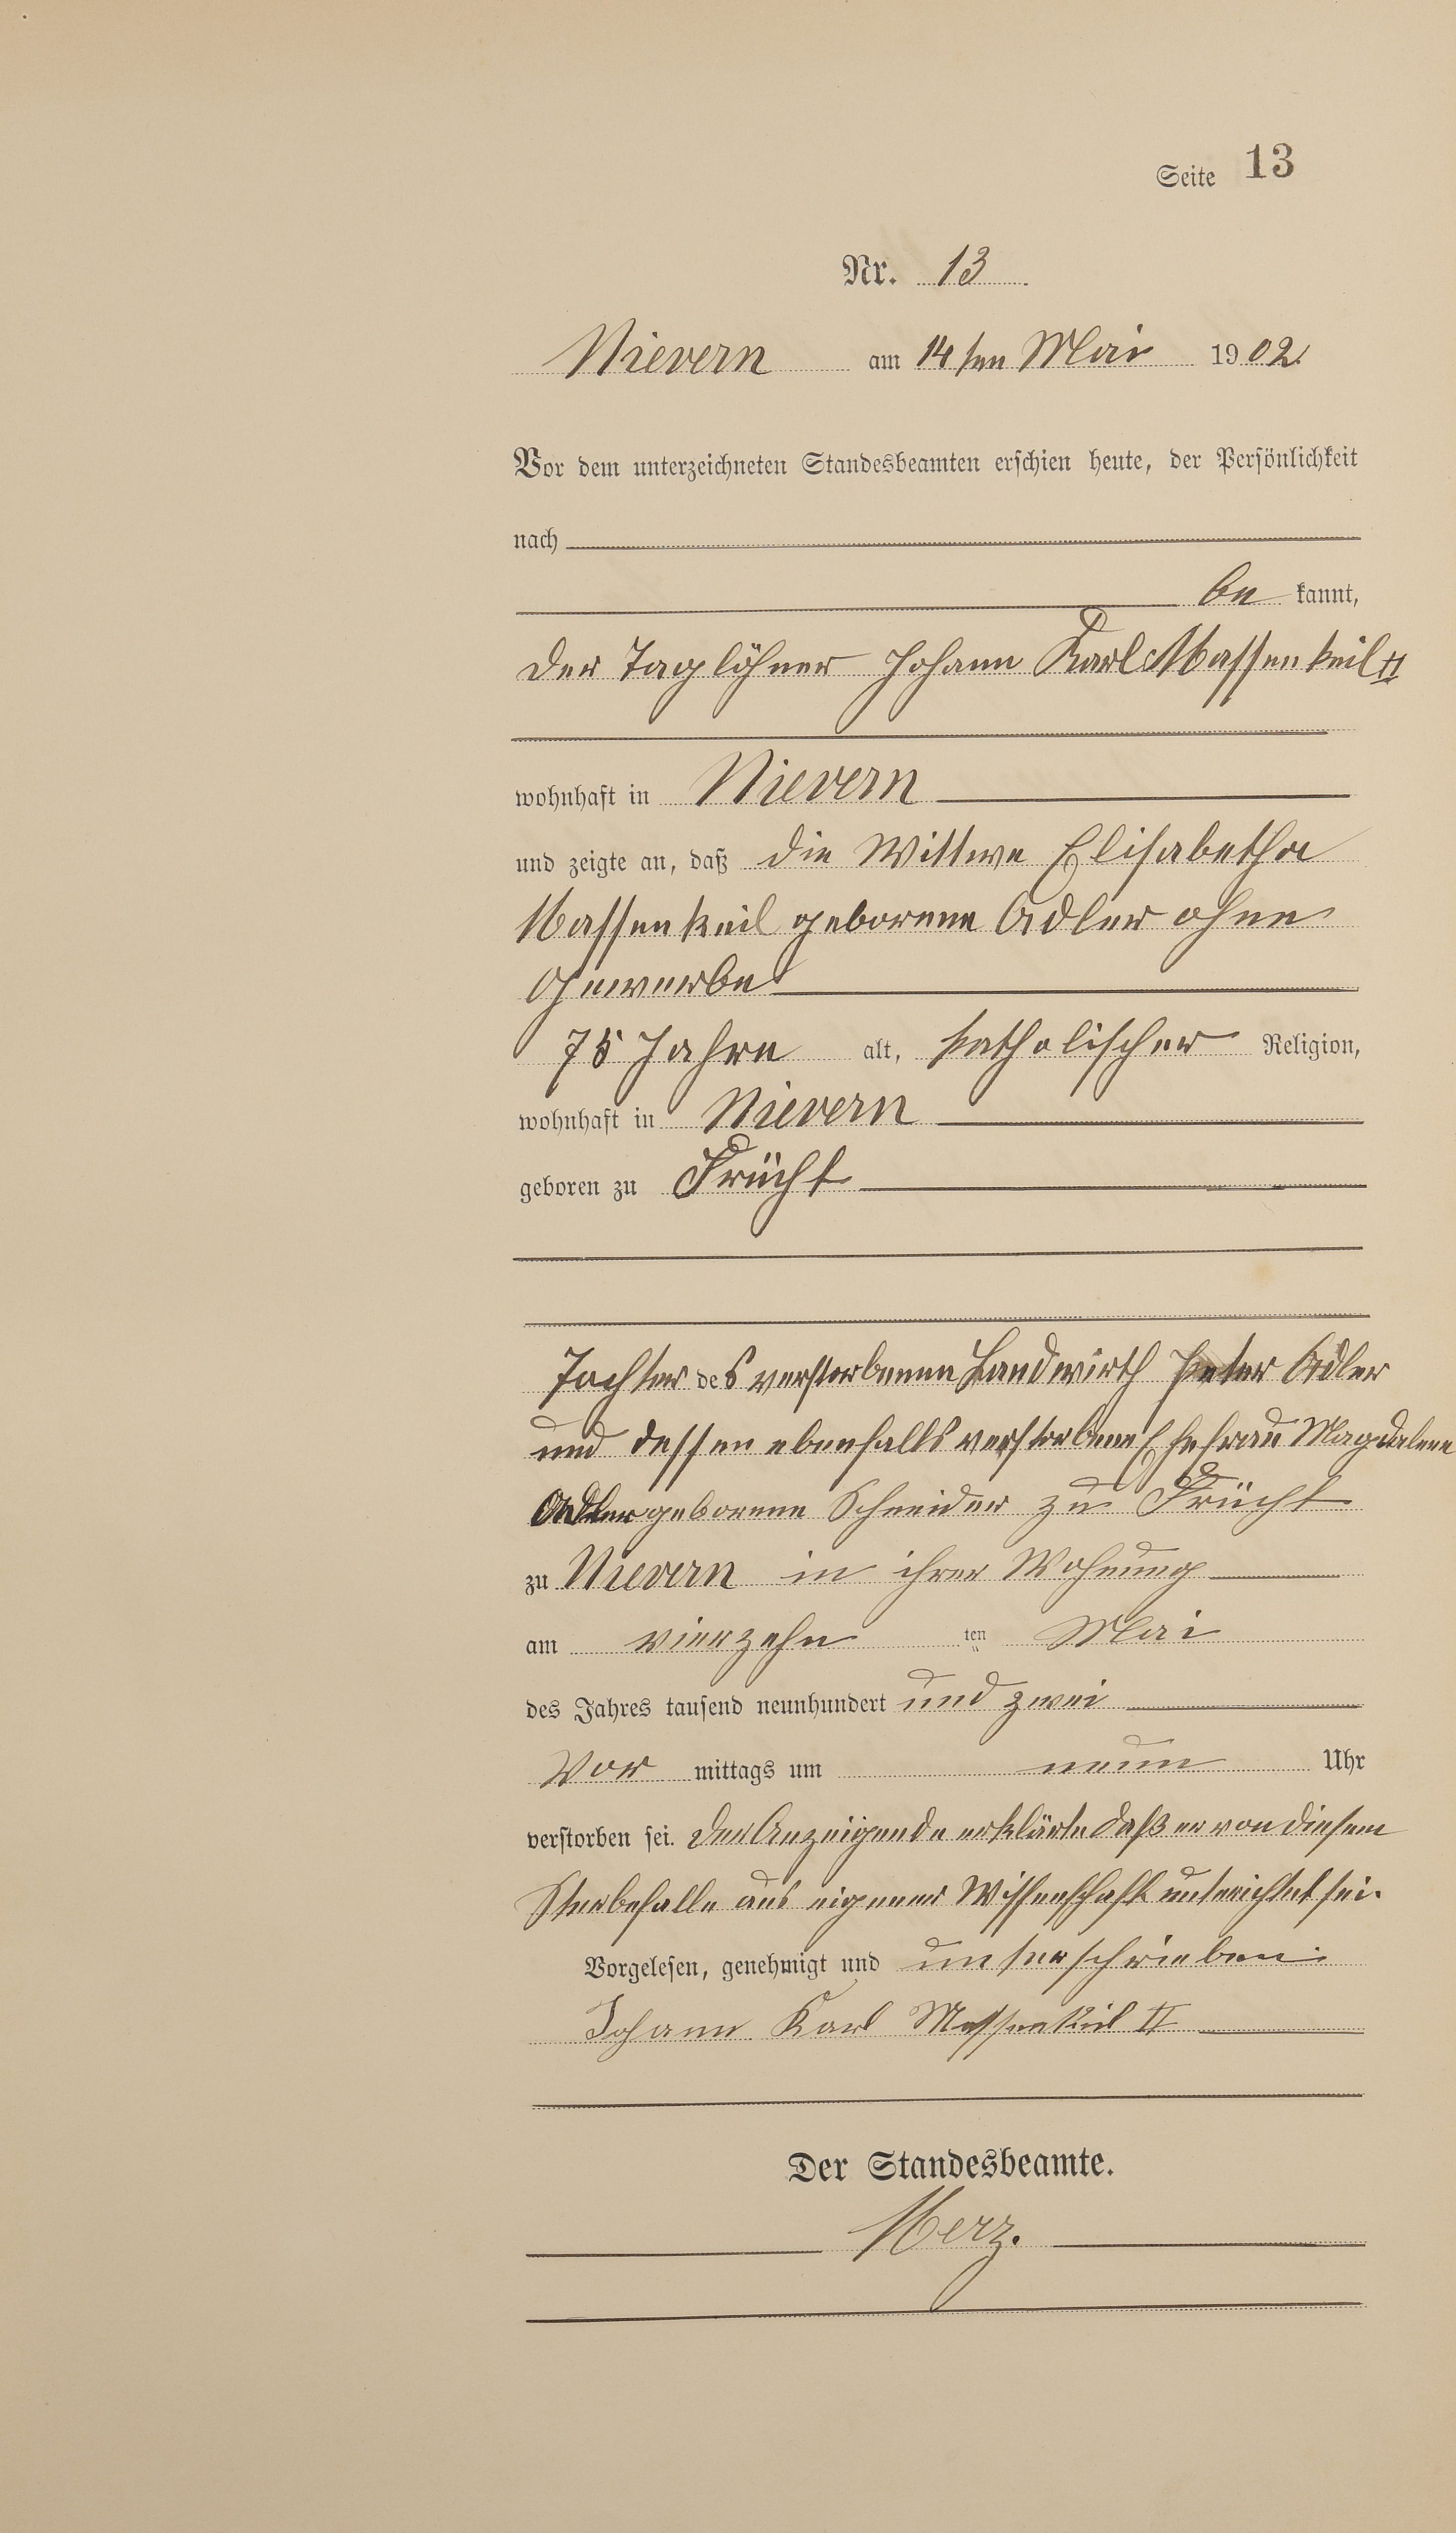 Seite 13
Nr. 13
Nievern am 14ten Mai 1902.
Vor dem unterzeichneten Standesbeamten erschien heute, der Persönlichkeit
nach
be kannt,
der Taglöhner Johann Karl Massenkeil II
wohnhaft in Nievern
und zeigte an, daß die Wittwe Elisabetha
Massenkeil geborene Adler ohne
Gewerbe
75 Jahre alt, katholischer Religion,
wohnhaft in Nievern
geboren zu Frücht
Tochter des verstorbenen Landwirth Peter Adler
und dessen ebenfalls verstorbene Ehefrau Magdalene
Adler geborene Schneider zu Frücht
zu Nievern in ihrer Wohnung
am vierzehn ten Mai
des Jahres tausend neunhundert und zwei
Vor mittags um neun Uhr
verstorben sei. Der Anzeigende erklärte daß er von diesem
Sterbefalle aus eigener Wissenschaft unterichtet sei.
Vorgelesen, genehmigt und unterschrieben.
Johann Karl Massenkeil II
Der Standesbeamte.
Merz.